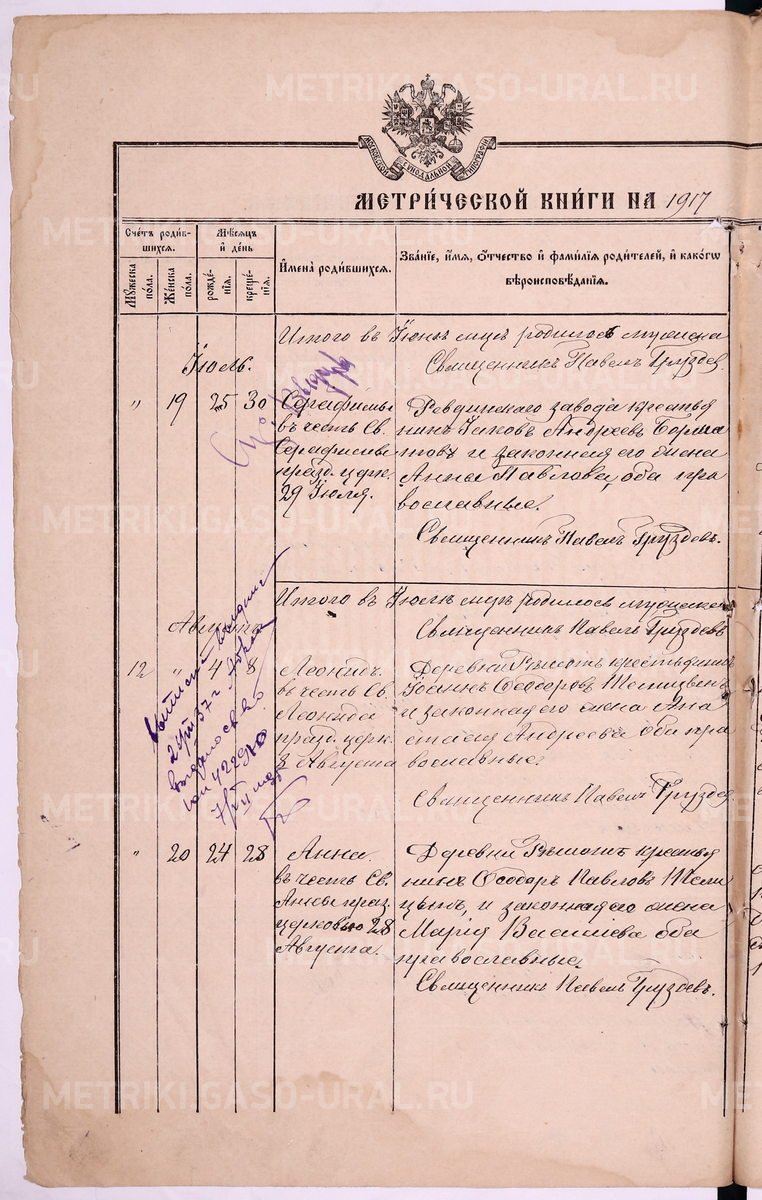 METRIKI.GASO-URAL.RU
МОСКОВСКОЙ СѴНОДАЛЬНОЙ ТИПОГРАФІИ
МЕТРИ́ЧЕСКОЙ КНИ́ГИ НА 1917
Сче́тъ роди́вшихся.
Му́жеска по́ла.
Же́нска по́ла.
Мѣ́сяцъ и҆ де́нь
рожде́нїѧ.
креще́нїѧ.
И҆мена̀ роди́вшихся.
Зва́нїе, и҆́мѧ, ѻ҆́тчество и҆ фами́лїѧ роди́телей, и҆ како́гѡ
вѣроисповѣ́данїѧ.
Итого въ Іюнѣ мцѣ родилось мужска
Священникъ Павелъ Груздевъ
Іюль.
" 19 25 30
Серафимы
въ честь Св.
Серафимы
празд. церк.
29 Іюля.
Ревдинскаго завода крестья
нинъ Іаковъ Андреевъ
и законная его жена
Анна Павлова, оба пра
вославные.
Священникъ Павелъ Груздевъ.
Итого въ Іюлѣ мцѣ родилось мужска
Священникъ Павелъ Груздевъ
Августа
12 " 4 8
Леонидъ
въ честь Св.
Леонида
празд. церк.
8 Августа
Деревни крестьянинъ
Іоаннъ Ѳеодоровъ
и законная его жена Ана
стасія Андреева оба пра
вославные.
Священникъ Павелъ Груздев
" 20 24 28
Анна
въ честь Св.
Анны праз.
церковью 28
Августа.
Деревни крестья
нинъ Ѳеодоръ Павловъ
и законная его жена
Марія Василіева оба
православные.
Священникъ Павелъ Груздевъ.